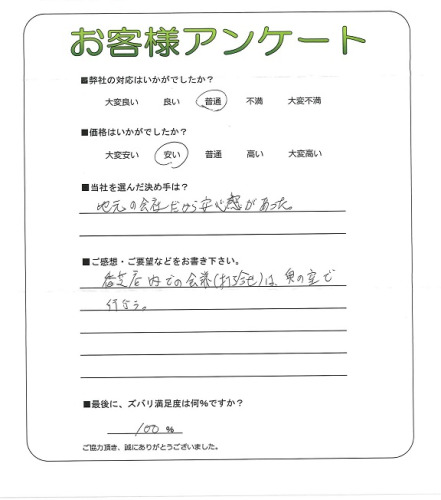 お客様アンケート
■弊社の対応はいかがでしたか？
大変良い 良い 普通 不満 大変不満
■価格はいかがでしたか？
大変安い 安い 普通 高い 大変高い
■当社を選んだ決め手は？
地元の会社だから安心感があった。
■ご感想・ご要望などをお書き下さい。
香芝店内での会議(打合せ)は、奥の室で
行なう。
■最後に、ズバリ満足度は何%ですか？
100 %
ご協力頂き、誠にありがとうございました。